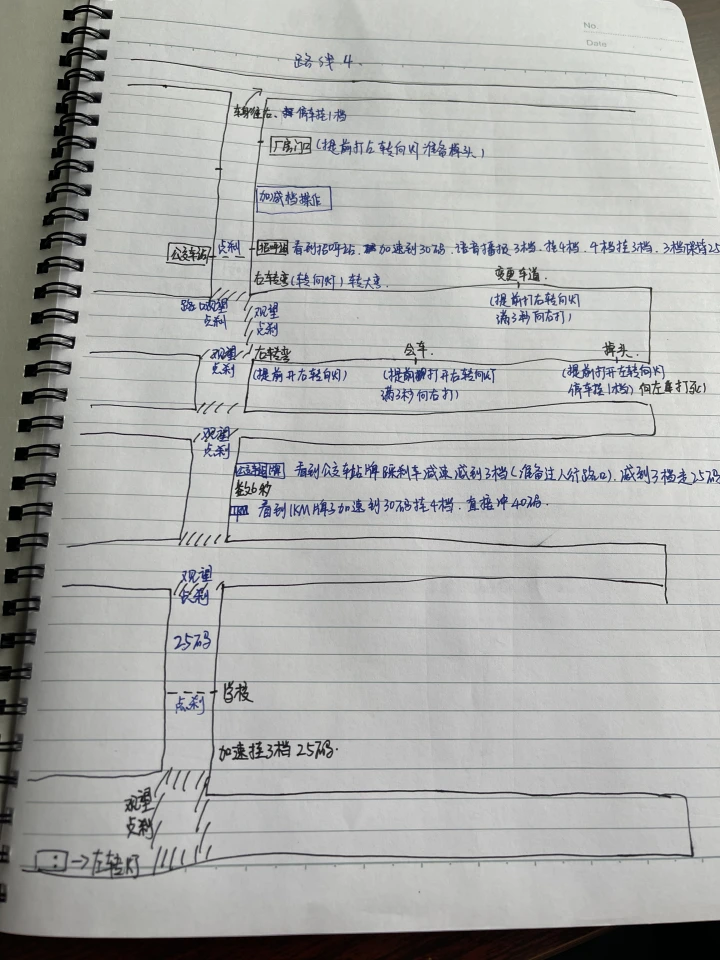 No.
Date
路线4
停车挂1档
厂房门口 (提前打左转向灯 准备掉头)
加减档操作
公交车站 点刹 招呼站 看到招呼站. 加速到30码. 语音播报3档. 挂4档. 4档挂3档. 3档保持25
右转弯 (转向灯) 转大弯
变更车道.
(提前打右转向灯
满3秒向右打)
路口观望
点刹
观望
点刹
观望
点刹
右转弯
(提前开右转向灯)
会车.
(提前打开右转向灯
满3秒向右打)
掉头.
(提前打开左转向灯
停车挂1档) 向左打死)
观望
点刹
看到公交车站牌 踩刹车减速 减到3档 (准备过人行路口). 减到3档走25码
看到1KM牌子加速到30码挂4档. 直接冲40码.
观望
点刹
25码
学校
点刹
加速挂3档 25码.
观望
点刹
→左转灯